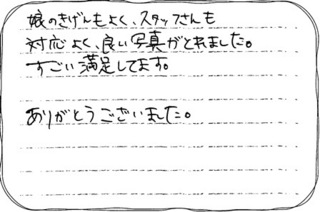 娘のきげんもよく、スタッフさんも
対応よく、良い写真がとれました。
すごい満足してます。
ありがとうございました。